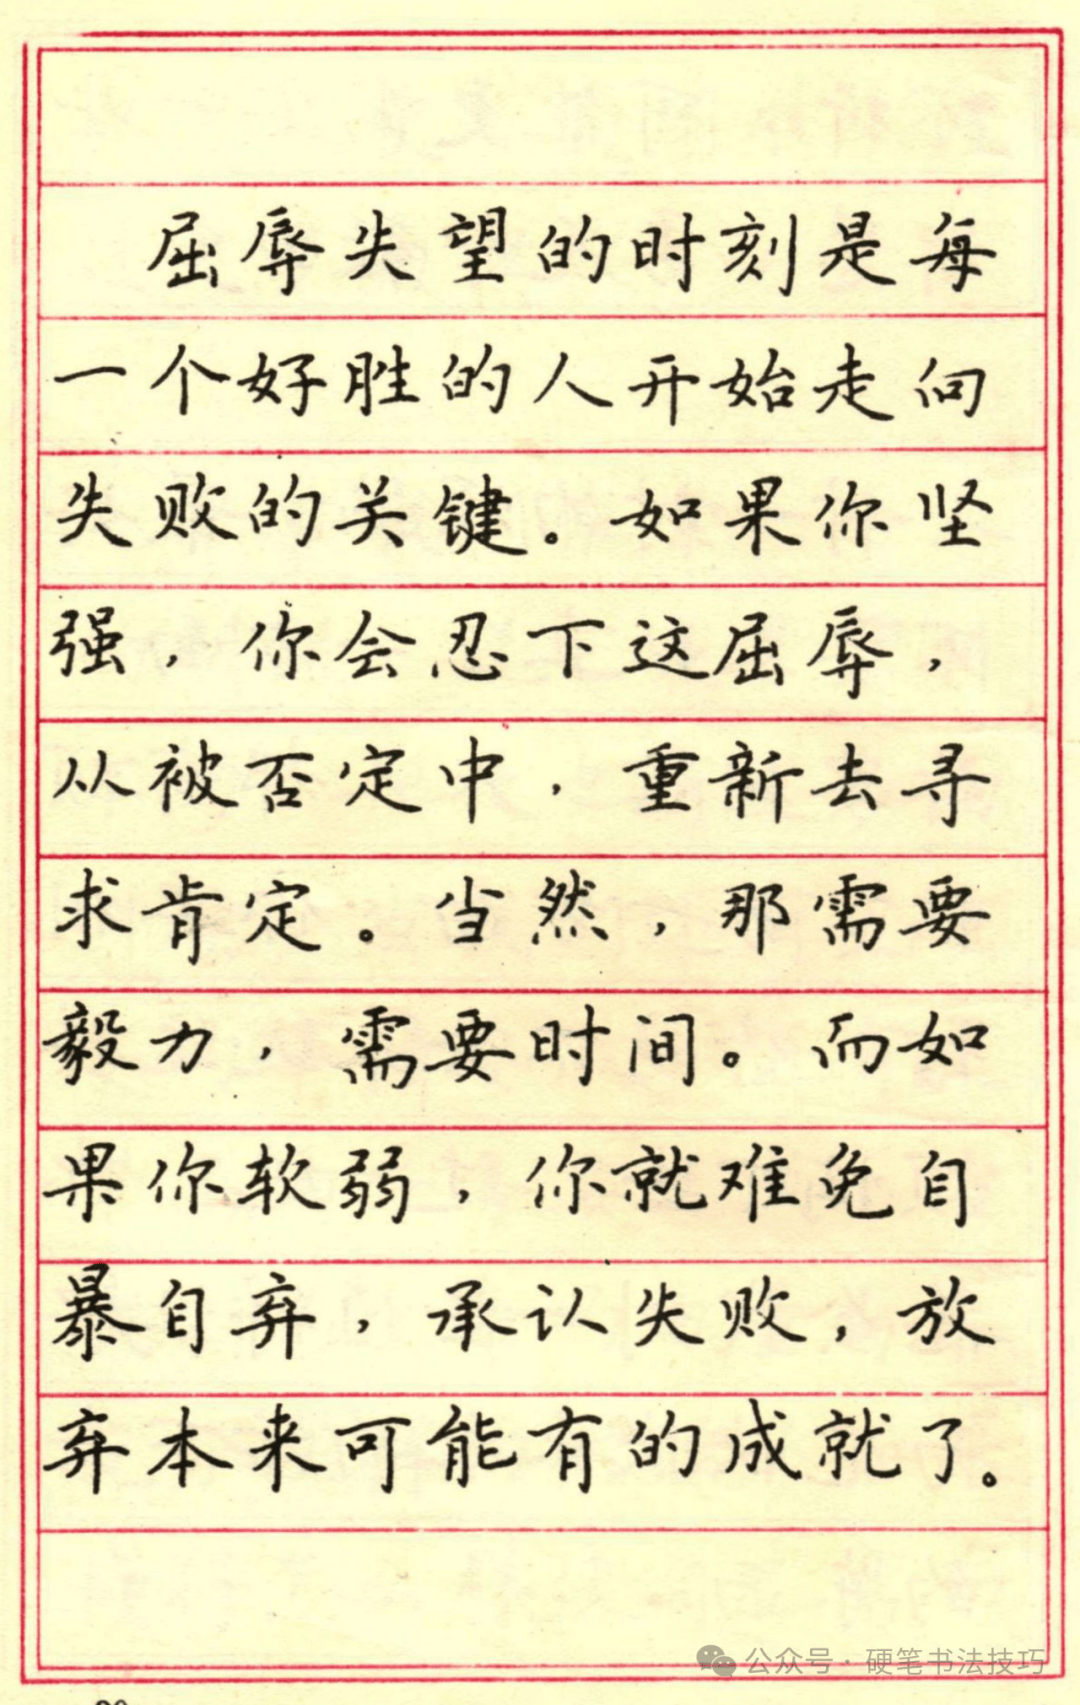 屈辱失望的时刻是每
一个好胜的人开始走向
失败的关键。如果你坚
强，你会忍下这屈辱，
从被否定中，重新去寻
求肯定。当然，那需要
毅力，需要时间。而如
果你软弱，你就难免自
暴自弃，承认失败，放
弃本来可能有的成就了。
公众号·硬笔书法技巧